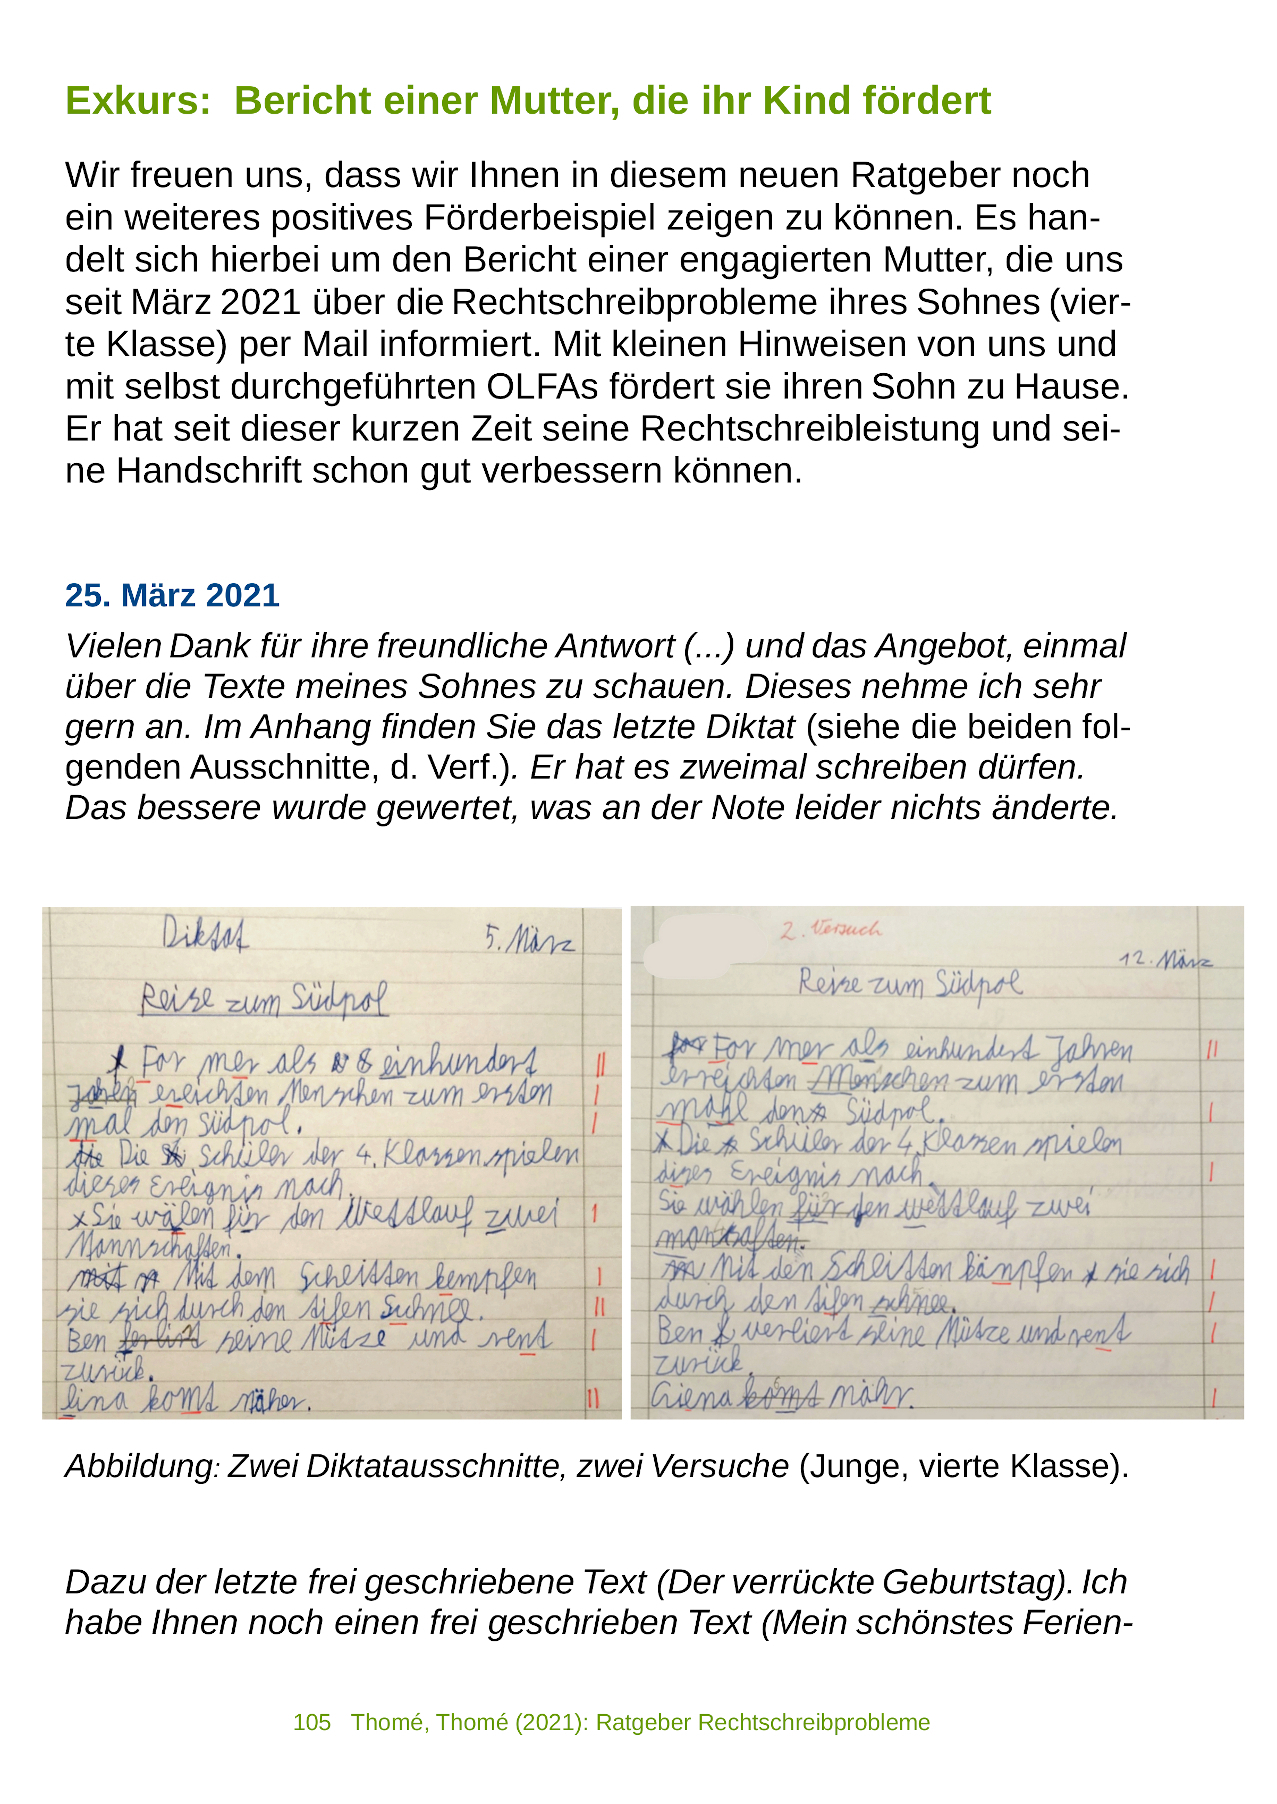 Exkurs: Bericht einer Mutter, die ihr Kind fördert
Wir freuen uns, dass wir Ihnen in diesem neuen Ratgeber noch
ein weiteres positives Förderbeispiel zeigen zu können. Es han-
delt sich hierbei um den Bericht einer engagierten Mutter, die uns
seit März 2021 über die Rechtschreibprobleme ihres Sohnes (vier-
te Klasse) per Mail informiert. Mit kleinen Hinweisen von uns und
mit selbst durchgeführten OLFAs fördert sie ihren Sohn zu Hause.
Er hat seit dieser kurzen Zeit seine Rechtschreibleistung und sei-
ne Handschrift schon gut verbessern können.
25. März 2021
Vielen Dank für ihre freundliche Antwort (...) und das Angebot, einmal
über die Texte meines Sohnes zu schauen. Dieses nehme ich sehr
gern an. Im Anhang finden Sie das letzte Diktat (siehe die beiden fol-
genden Ausschnitte, d. Verf.). Er hat es zweimal schreiben dürfen.
Das bessere wurde gewertet, was an der Note leider nichts änderte.
Diktat 5. März
Reise zum Südpol
For mer als einhundert
Jahren ereichten Menschen zum ersten
mal den Südpol.
Die Schüler der 4. Klassen spielen
dieses Ereignis nach.
Sie wälen für den Wettlauf zwei
Mannschaften.
Mit dem Schleitten kempfen
sie sich durch den tifen Schnee.
Ben seine Mütze und rent
zurück.
lina komt näher.
2. Versuch
12. März
Reise zum Südpol
For mer als einhundert Jahren
erreichten Menschen zum ersten
mahl den Südpol.
Die Schüler der 4. Klassen spielen
dises Ereignis nach.
Sie wählen für den wettlauf zwei
Mit den Schleitten känpfen sie sich
durch den tifen schnee.
Ben verliert seine Mütze und rent
zurück.
komt nähr.
Abbildung: Zwei Diktatausschnitte, zwei Versuche (Junge, vierte Klasse).
Dazu der letzte frei geschriebene Text (Der verrückte Geburtstag). Ich
habe Ihnen noch einen frei geschrieben Text (Mein schönstes Ferien-
105 Thomé, Thomé (2021): Ratgeber Rechtschreibprobleme